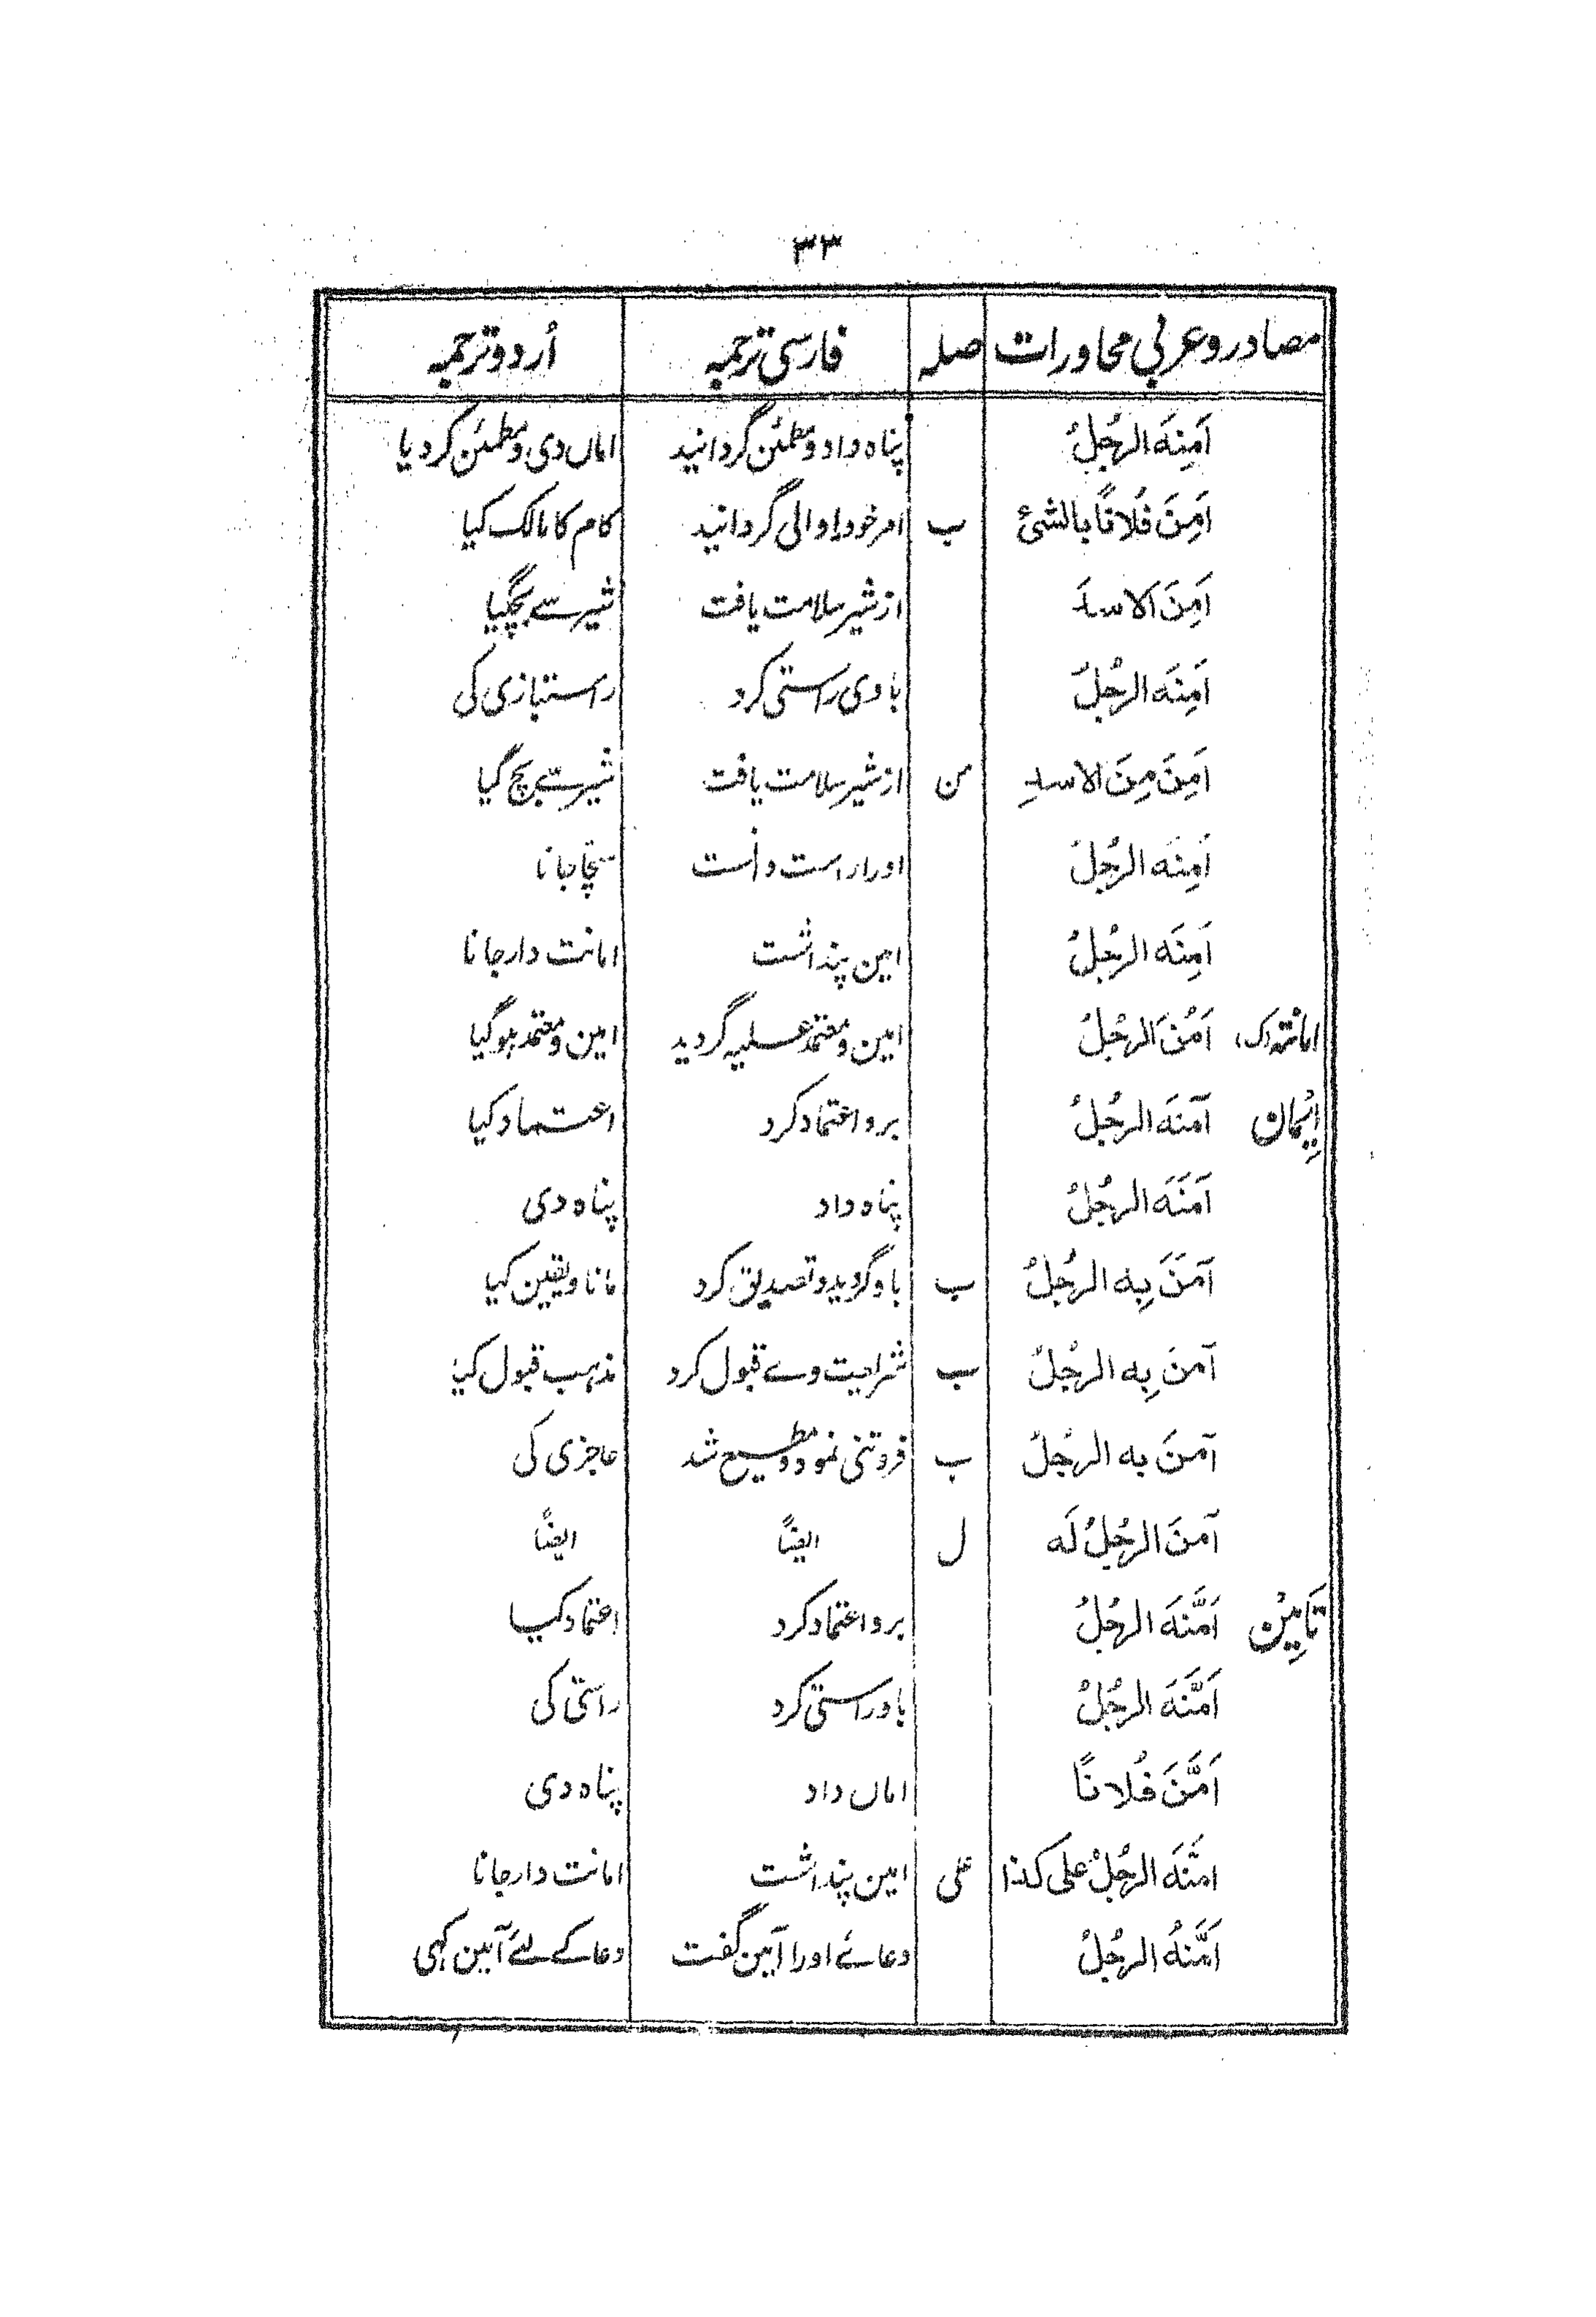 ٣٣
مصادر و عربی محاورات صلہ فارسی ترجمہ اُردو ترجمہ
اَمِنَهَ الرجُلُ پناہ داد و مطمئن گردانید اماں دی و مطمئن کر دیا
اَمِنَ فُلَانًا بالشئ ب امر خود را والی گردانید کام کا مالک کیا
اَمِنَ الاسدَ از شیر سلامت یافت شیر سے بچ گیا
اَمِنَهَ الرجُلُ با وی راستی کرد راستبازی کی
اَمِنَ مِنَ الاسدِ من از شیر سلامت یافت شیر سے بچ گیا
اَمِنَه الرجُلُ اورا راست دانست سچا جانا
اَمِنَهَ الرجُلُ امین پنداشت امانت دار جانا
امانتہ (ک) اَمُنَ الرجُلُ امین و معتمد علیہ گردید امین و معتمد ہو گیا
اِیْمان آمنَهَ الرجُلُ برو اعتماد کرد اعتماد کیا
آمَنَهَ الرجُلُ پناہ داد پناہ دی
آمَنَ بِه الرجُلُ ب با و گروید و تصدیق کرد مانا و یقین کیا
آمنَ بِه الرجُلُ ب شراعیت وے قبول کرد مذہب قبول کیا
آمنَ به الرجُلُ ب فروتنی نمود و مطیع شد عاجزی کی
آمنَ الرجُلُ لَه ل ایضاً ایضاً
تَامِیْن اَمَّنَهَ الرجُلُ برو اعتماد کرد اعتماد کیا
اَمَّنَهَ الرجُلُ با و راستی کرد راستی کی
اَمَّنَ فُلانًا اماں داد پناہ دی
امَّنَهَ الرجُلُ علی کذا علی امین پنداشت امانت دار جانا
اَمَّنَهُ الرجُلُ دعائے اورا آمین گفت دعا کے لئے آمین کہی